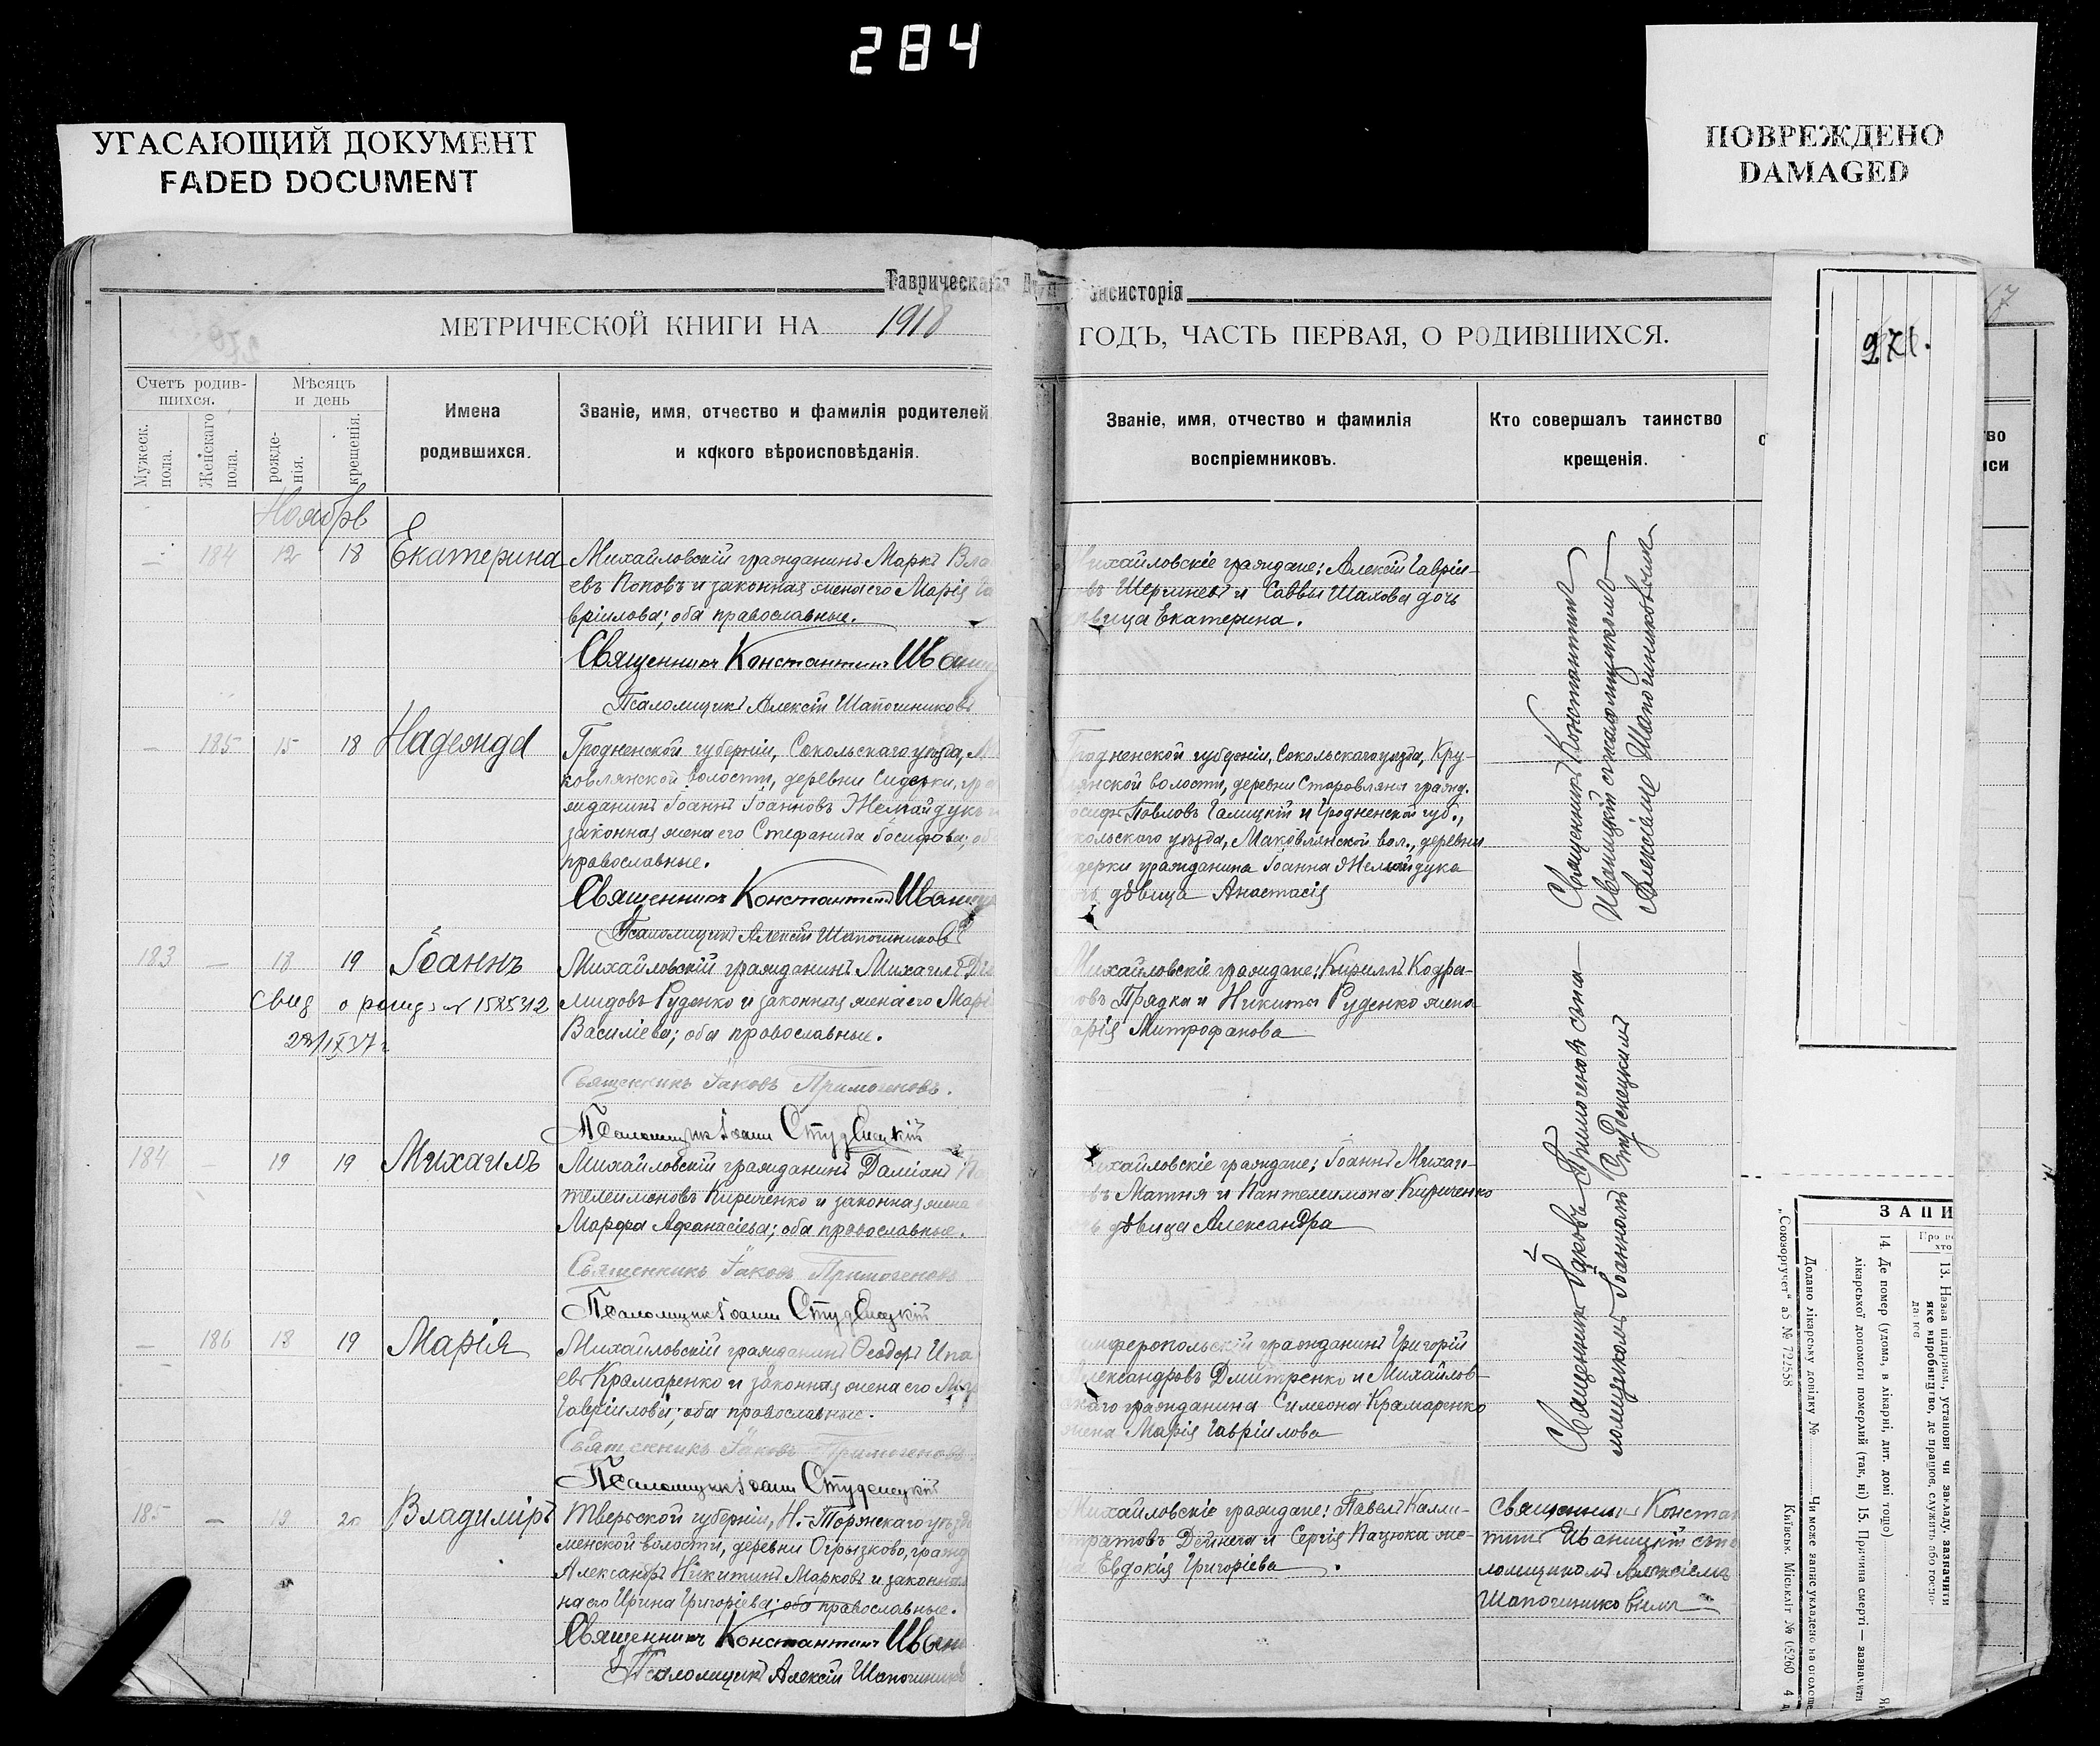 284
УГАСАЮЩИЙ ДОКУМЕНТ
FADED DOCUMENT
ПОВРЕЖДЕНО
DAMAGED
Таврическая
нсисторія
МЕТРИЧЕСКОЙ КНИГИ НА 1918
ГОДЪ, ЧАСТЬ ПЕРВАЯ, О РОДИВШИХСЯ.
Счетъ родив-
шихся.
Мужеск.
пола.
Женскаго
пола.
Мѣсяцъ
и день
рожде-
нія.
крещенія.
Имена
родившихся.
Званіе, имя, отчество и фамилія родителей
и какого вѣроисповѣданія.
Званіе, имя, отчество и фамилія
воспріемниковъ.
Кто совершалъ таинство
крещенія.
Ноябрь
— 184 12 18 Екатерина
Михайловскій гражданинъ Маркъ Вла
евъ Поповъ и законная жена его Марія Га
вріилова; оба православные.
Священникъ Константинъ Иваниц
Псаломщикъ Алексій Шапошниковъ
ихайловскіе граждане: Алексій Гавріи-
въ Шершневъ и Саввы Шахова дочь
вица Екатерина.
— 185 15 18 Надежда
Гродненской губерніи, Сокольскаго уѣзда, М
ковлянской волости, деревни Сидерки, гра
жданинъ Іоаннъ Іоанновъ Желмайдукъ и
законная жена его Стефанида Іосифова; об
православные.
Священникъ Константинъ Иваниц
Псаломщикъ Алексій Шапошниковъ
Гродненской губерніи, Сокольскаго уѣзда, Кру-
лянской волости, деревни Старовляня гражд.
осифъ Павловъ Галицкій и Гродненской губ.,
кольскаго уѣзда, Маковлянской вол., деревни
дерки гражданина Іоанна Желмайдука
чь дѣвица Анастасія
Священникъ Константинъ
Иваницкій съ псаломщикомъ
Алексіемъ Шапошниковымъ
183 — 18 19 Іоаннъ
Свид о рожд з № 1585312
27/IX 37 г
Михайловскій гражданинъ Михаилъ Діо
мидовъ Руденко и законная жена его Марі
Василіева; оба православные.
Священникъ Іаковъ Примогеновъ.
Псаломщикъ Іоаннъ Студенецкій
Михайловскіе граждане: Кириллъ Кодра-
товъ Прядка и Никиты Руденко жена
арія Митрофанова
184 — 19 19 Михаилъ
Михайловскій гражданинъ Даміанъ Па
телеимоновъ Кириченко и законная жена
Марфа Афанасіева; оба православные.
Священникъ Іаковъ Примогеновъ
Псаломщикъ Іоаннъ Студенецкій
ихайловскіе граждане; Іоаннъ Михаи-
въ Матня и Пантелеимона Кириченко
чь дѣвица Александра
— 186 18 19 Марія
Михайловскій гражданинъ Ѳеодоръ Ипа
евъ Крамаренко и законная жена его
Гавріилова; оба православные.
Священникъ Іаковъ Примогеновъ
Псаломщикъ Іоаннъ Студенецкій
имферопольскій гражданинъ Григорій
Александровъ Дмитренко и Михайлов-
скаго гражданина Симеона Крамаренко
жена Марія Гавріилова
Священникъ Іаковъ Примогеновъ съ пса-
ломщикомъ Іоанномъ Студенецкимъ
185 — 19 20 Владиміръ
Тверской губерніи, Н.-Торжскаго уѣзда
менской волости, деревни Огрызково, гражд
Александръ Никитинъ Марковъ и законная
на его Ирина Григоріева; оба православные.
Священникъ Константинъ Иван
Псаломщикъ Алексій Шапошников
Михайловскіе граждане: Павелъ Калли-
тратовъ Дейнега и Сергія Пацюка же-
на Евдокія Григоріева.
Священникъ Констан
тинъ Иваницкій съ пса
ломщикомъ Алексіемъ
Шапошниковымъ
во
иси
ЗАПИ
13. Назва підприєм., установи чи закладу, зазначити
яке виробництво, де працює, служить або госпо-
14. Де помер (удома, в лікарні, дит. домі тощо)
лікарської допомоги померлий (так, ні) 15. Причина смерті — зазначити
Додано лікарську довідку №
Чи може запис укладено на оголоше
„Союзоргучет“ аб № 722558
Київськ. Міськліт № 05260